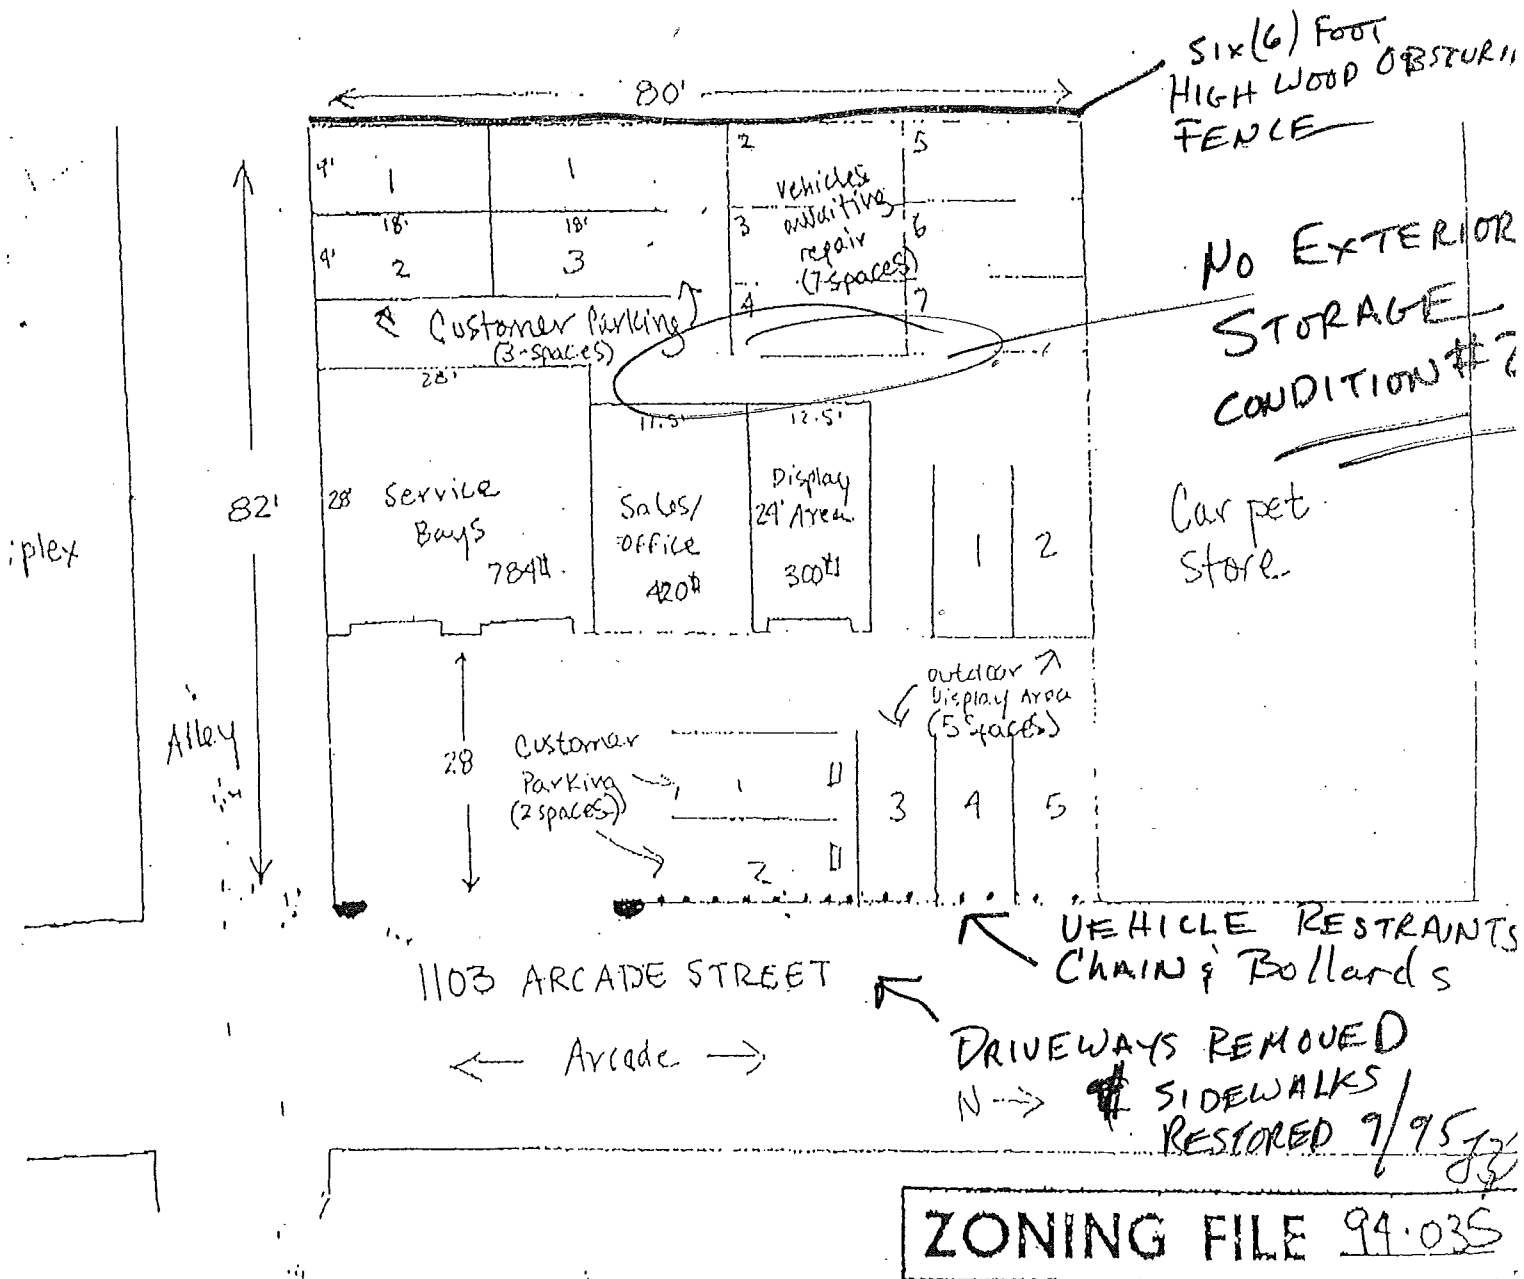 SIX (6) FOOT
HIGH WOOD
FENCE
80'
9'
1
1
2
5
18'
18'
9'
2
3
3
6
vehicles
awaiting
repair
(7-spaces)
4
7
NO EXTERIOR
STORAGE
CONDITION #
Customer Parking
(3-spaces)
28'
11.5'
12.5'
82'
28'
Service
Bays
784#
Sales/
Office
420#
Display
24' Area
300#
1
2
Carpet
Store
plex
Alley
28
Customer
Parking
(2 spaces)
1
2
outdoor
Display Area
(5 spaces)
3
4
5
VEHICLE RESTRAINTS
CHAIN & Bollards
1103 ARCADE STREET
← Arcade →
DRIVEWAYS REMOVED
N → & SIDEWALKS
RESTORED 9/95
ZONING FILE 94.035